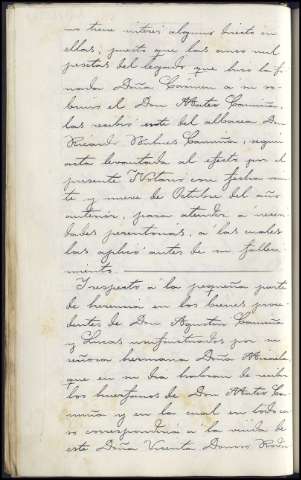 no tiene interés alguno directo en
ellas, puesto que las cinco mil
pesetas del legado que hizo la fi-
nada Doña Carmen a su so-
brino el Don Mateo Camiña,
las recibió este del albacea Don
Ricardo Camiña, según
acta levantada al efecto por el
presente Notario con fecha vein-
te y nueve de Octubre del año
anterior, para atender a necesi-
dades perentorias, a las cuales
las aplicó antes de su falleci-
miento.
Y respecto á la pequeña parte
de herencia en los bienes proce-
dentes de Don Agustin Camiña
y usufructuados por su
señora hermana Doña Micaela
que en su dia habran de recibir
los huerfanos de Don Mateo Ca-
miña y en la cual en todo ca-
so correspondería á la viuda de
este Doña Vicenta